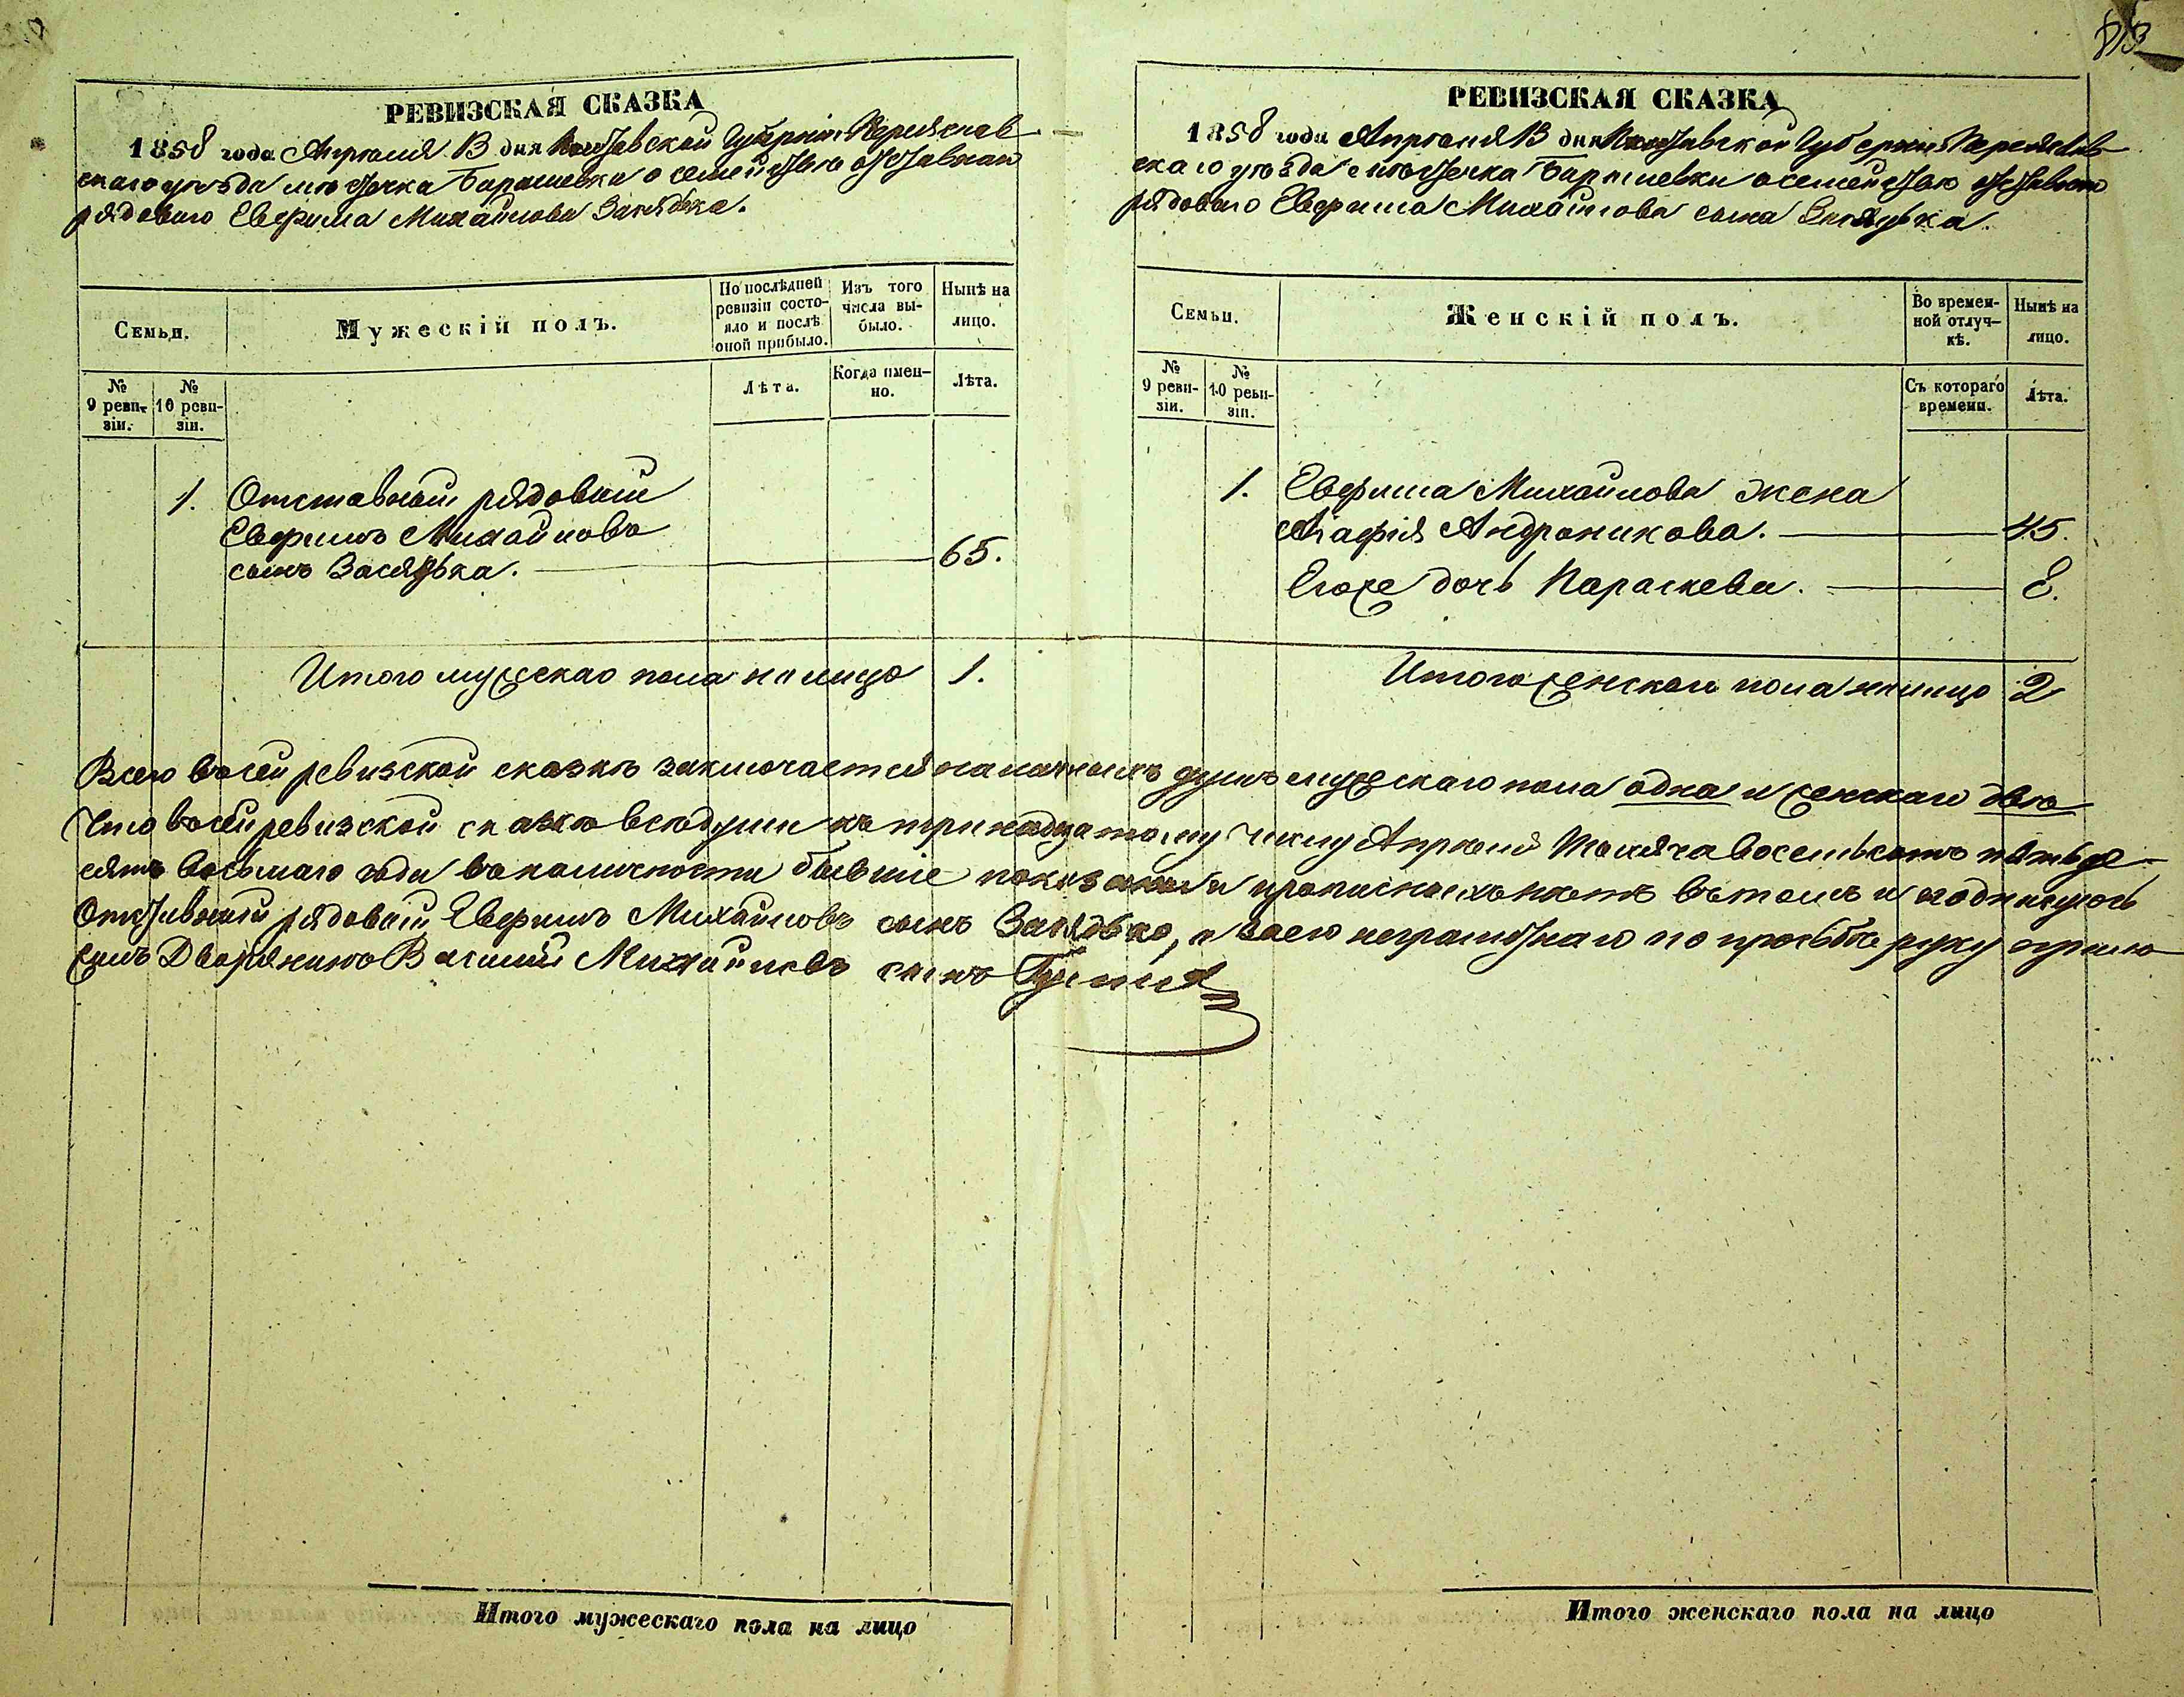 РЕВИЗСКАЯ СКАЗКА
1858 года Апрѣля 13 дня Полтавской Губерніи Переяслав
скаго уѣзда мѣстечка Барышевки о семействѣ отставнаго
рядоваго Евфима Михайлова
Семьи.
Мужескій полъ.
По послѣдней ревизіи состо-
яло и послѣ
оной прибыло.
Изъ того
числа вы-
было.
Нынѣ на
лицо.
№
9 реви-
зіи.
№
10 реви-
зіи.
Лѣта.
Когда имен-
но.
Лѣта.
1. Отставный рядовый
Евфимъ Михайловъ
сынъ Засядька. 65.
Итого мужескаго пола на лицо 1.
РЕВИЗСКАЯ СКАЗКА
1858 года Апрѣля 13 дня Полтавской Губерніи Переяслав
скаго уѣзда мѣстечка Барышевки о семействѣ отставнаго
рядоваго Евфима Михайлова сына
Семьи.
Женскій полъ.
Во времен-
ной отлуч-
кѣ.
Нынѣ на
лицо.
№
9 реви-
зіи.
№
10 реви-
зіи.
Съ котораго
времени.
Лѣта.
1. Евфима Михайлова жена
Агафія Андроникова. 45.
Егоже дочь Параскева. 8.
Итого женскаго пола налицо 2
Всего въ сей ревизской сказкѣ заключается наличныхъ душъ мужескаго пола одна и женскаго двѣ
Что въ сей ревизской сказкѣ всѣ души къ тринадцатому числу Апрѣля Тысяча восемьсотъ пятьде
сятъ восьмаго года въ наличности бывшіе показаны и прописныхъ нетъ въ томъ и подписуюсь
Отставный рядовый Евфимъ Михайловъ сынъ Засядько, а вмѣсто неграмотнаго по прозьбѣ руку прило
жилъ Дворянинъ Василий Михайловъ сынъ
Итого мужескаго пола на лицо
Итого женскаго пола на лицо